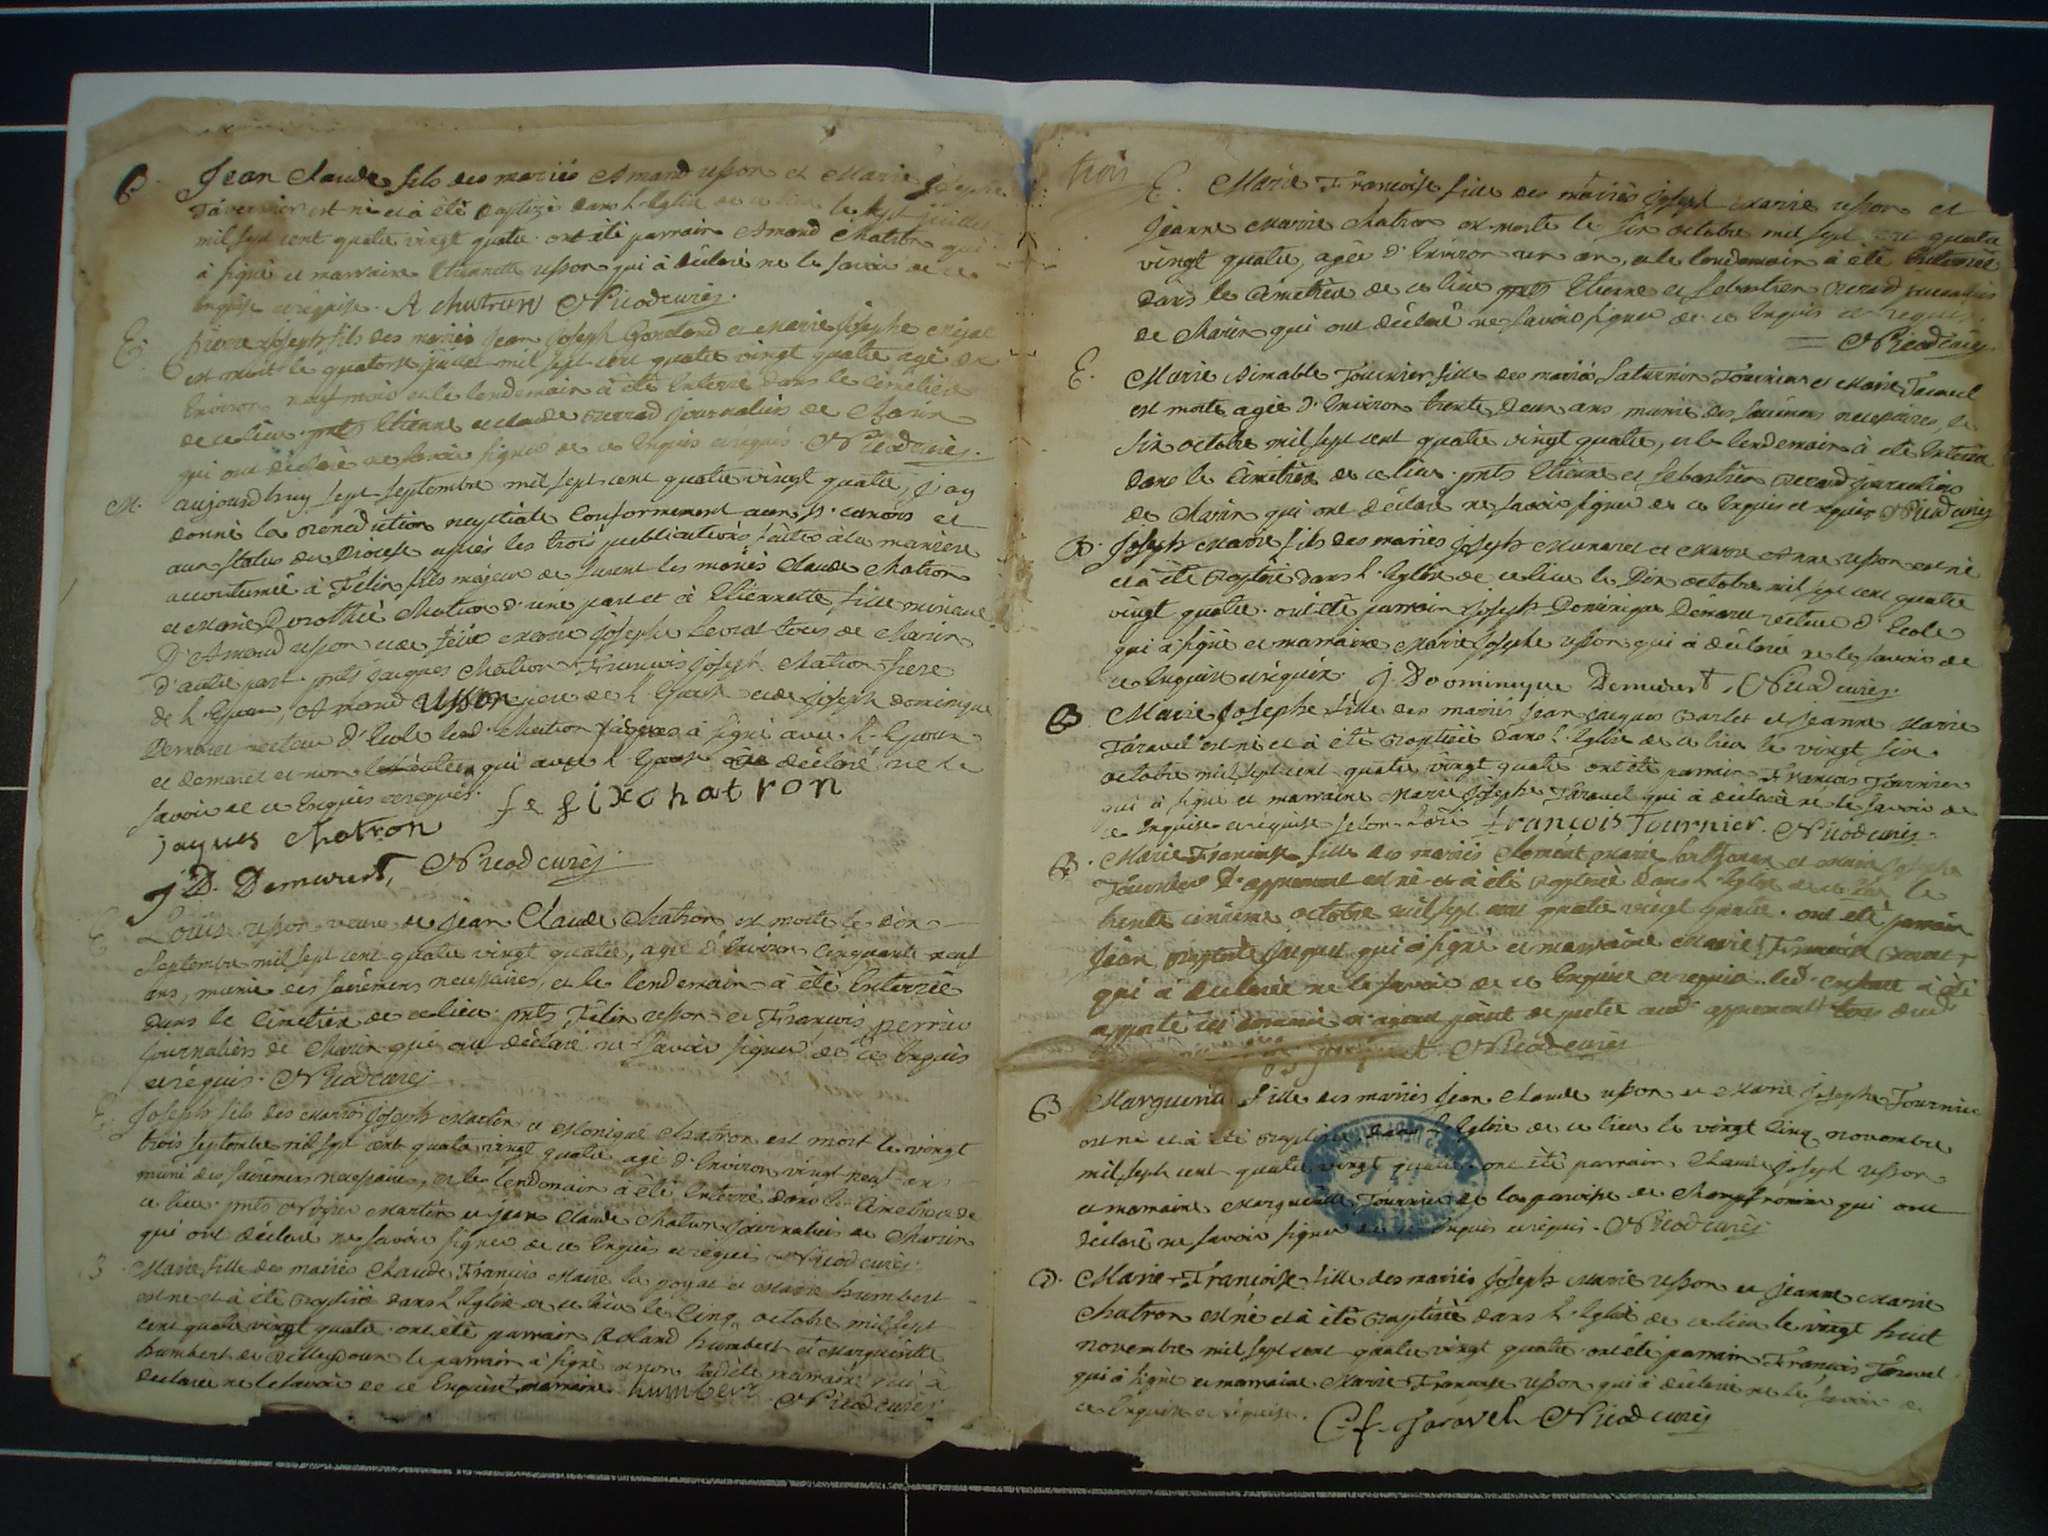 B. Jean Claude fils des mariés Amand usson et Marie Josephe
Tavernier est né et à été Baptizé dans l'Eglise de ce lieu le sept juillet
mil sept cent quatre vingt quatre. ont été parrain Amand Chatron qui
à signé et marraine Etiennette usson qui à déclaré ne le savoir de ce
Enquise et requise. A chatron Nicod curés.
E. pierre joseph fils des mariés Jean Joseph et Marie Josephe
est mort le quatorse juillet mil sept cent quatre vingt quatre agé de
Environ neuf mois et le lendemain à été Enterré dans le Cimetière
de ce lieu. pnts Etienne et claude journaliers de Charix
qui ont déclaré ne savoir signer de ce Enquis et requis. Nicod curés.
M. aujourdhuy sept septembre mil sept cent quatre vingt quatre, j'ay
donné la Benediction nuptiale Conformement aux sts. canons et
aux statuts du Diocese après les trois publications faites à la maniere
accoutumée à Félix fils majeur de furent les mariés Claude Chatron
et Marie Dorothée Chatron d'une part et à Etiennette fille mineure
D'Amand usson et de feüe Marie Josephe Levrat tous de Charix
d'autre part. pnts Jacques Chatron François Joseph Chatron frere
de l'Epoux, Amand Usson pere de l'Epouse et de Joseph dominique
Demaret recteur d'Ecole led. Chatron Jaques à signé avec l'Epoux
et demaret et non les autres qui avec l'Epouse ont déclaré ne le
savoir de ce Enquis et requis. fe fixchatron
jaques chatron
j D. Demurert, Nicod curés.
E. Louise usson veuve de jean Claude Chatron est morte le dix
Septembre mil sept cent quatre vingt quatre, agée d'Environ Cinquante neuf
ans, munie des sacremens necessaires, et le lendemain à été Enterrée
dans le Cimetière de ce lieu. pnts Félix usson et François perrin
journaliers de Charix qui ont déclaré ne savoir signer de ce Enquis
et requis. Nicod curés
E. Joseph fils des mariés Joseph Martin et Monique Chatron est mort le vingt
trois septembre mil sept cent quatre vingt quatre agé d'Environ vingt neuf ans
muni des sacremens necessaires, et le lendemain à été Enterré dans le Cimetière de
ce lieu. pnts Martin et jean Claude Chatron journaliers de Charix
qui ont déclaré ne savoir signer de ce Enquis et requis Nicod curés.
B. Marie fille des mariés Claude François Marie la goyat et Marie humbert
est né et à été Baptisée dans l'Eglise de ce lieu le Cinq octobre mil sept
cent quatre vingt quatre. ont été parrain Roland humbert et Marguerite
humbert de le parrain à signé et non ladite marraine qui à
declaré ne le savoir de ce Enquise marraine. humbert Nicod curés
trois
E. Marie Françoise fille des mariés Joseph Marie usson et
Jeanne Marie Chatron est morte le six octobre mil sept cent quatre
vingt quatre, agée d'Environ un an, et le lendemain à été Enterrée
dans le Cimetière de ce lieu pnts Etienne et Sebastien journaliers
de Charix qui ont déclaré ne savoir signer de ce Enquis et requis.
Nicod curés.
E. Marie Aimable Tournier fille des mariés Saturnin Tournier et Marie Taravel
est morte agée d'Environ trente deux ans munie des sacremens necessaires, le
six octobre mil sept cent quatre vingt quatre, et le lendemain à été Enterrée
dans le Cimetière de ce lieu. pnts Etienne et Sebastien journaliers
de Charix qui ont déclaré ne savoir signer de ce Enquis et requis Nicod curés
B. Joseph Marie fils des mariés Joseph et Marie Anne usson est né
et à été Baptisé dans l'Eglise de ce lieu le Dix octobre mil sept cent quatre
vingt quatre. ont été parrain Joseph Dominique Demaret recteur d'Ecole
qui à signé et marraine Marie Josephe usson qui à déclaré ne le savoir de
ce Enquise et requise. j Doominique Demurert, Nicod curés.
B. Marie Josephe fille des mariés Jean Jacques Barlet et Jeanne Marie
Taravel est né et à été Baptisée dans l'Eglise de ce lieu le vingt six
octobre mil sept cent quatre vingt quatre. ont été parrain François Tournier
qui à signé et marraine Marie Josephe Taravel qui à déclaré ne le savoir de
ce Enquise et requise françois Tournier. Nicod curés.
B. Marie Françoise fille des mariés Clement Marie et Marie Josephe
Tournier d'appremont est né et à été Baptisée dans l'Eglise de ce lieu le
trente octobre mil sept cent quatre vingt quatre. ont été parrain
Jean Baptiste Jacquet qui à signé et marraine Marie Françoise
qui à déclaré ne le savoir de ce Enquise et requise. led. enfant à été
apporté ici n'ayant point de aud appremont
Nicod curés
B Marguerite fille des mariés Jean Claude usson et Marie Josephe Tournier
est né et à été Baptisée dans l'Eglise de ce lieu le vingt Cinq novembre
mil sept cent quatre vingt quatre. ont été parrain Claude Joseph usson
et marraine Marguerite Tournier de la paroisse de Champfromier qui ont
déclaré ne savoir signer de ce Enquis et requis. Nicod curés
B. Marie Françoise fille des mariés Joseph Marie usson et Jeanne Marie
Chatron est né et à été Baptisée dans l'Eglise de ce lieu le vingt huit
novembre mil sept cent quatre vingt quatre. ont été parrain François Taravel
qui à signé et marraine Marie Françoise usson qui à déclaré ne le savoir de
ce Enquise et requise. C f. Taravel Nicod curés